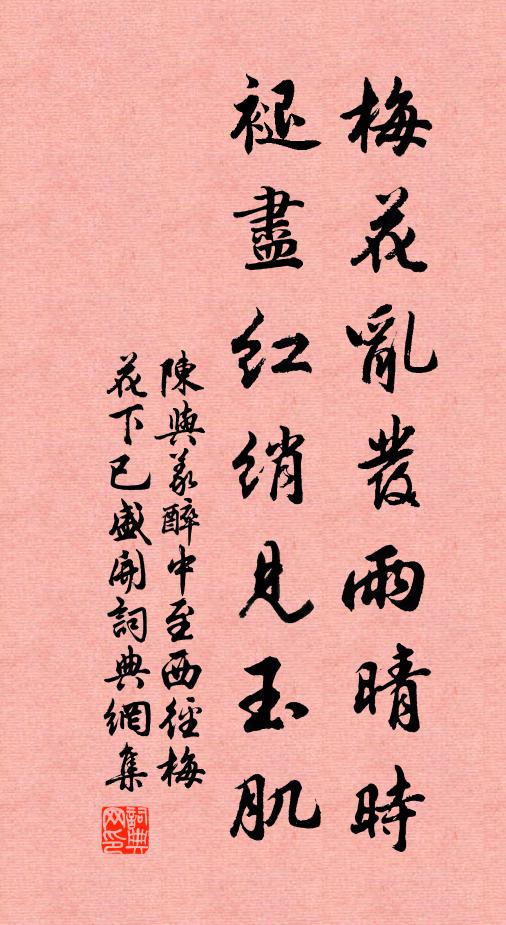 梅花亂發雨晴時
褪盡紅綃見玉肌
陳與義醉中至西徑梅
花下已盛開詞典網集
詞典網印